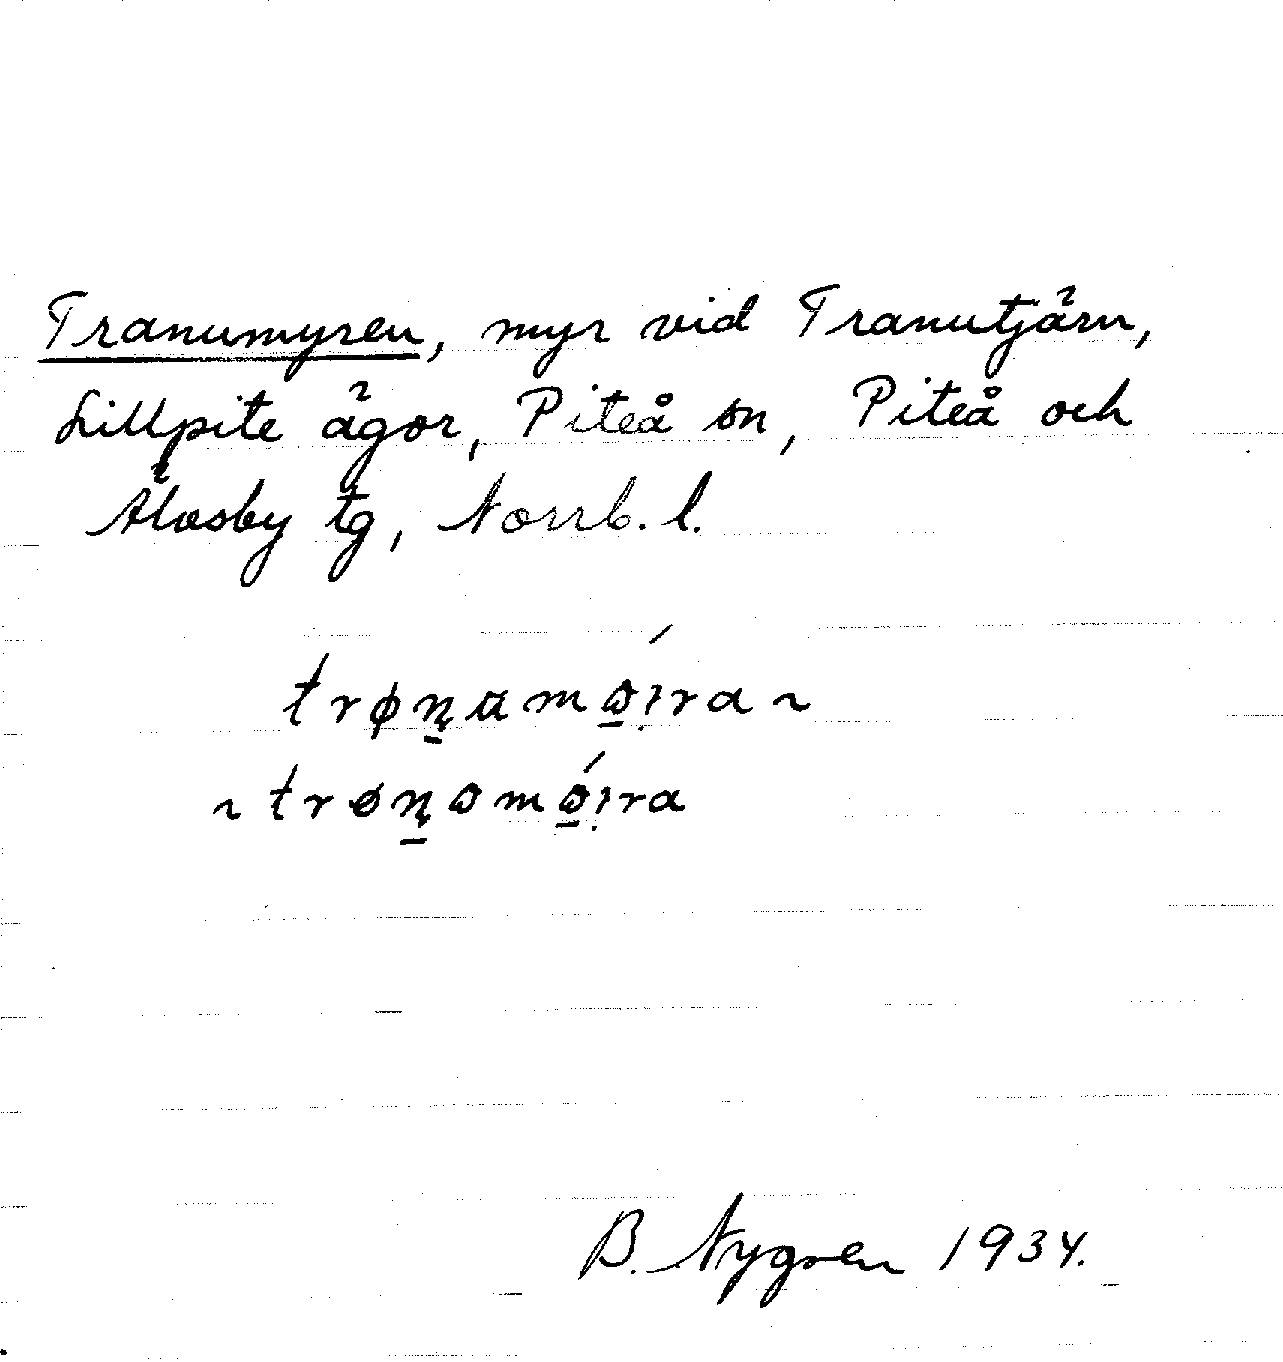 Tranumyren, myr vid Tranutjärn,
Lillpite ägor, Piteå sn, Piteå och
Älvsby tg, Norrb. l.
trøn̠ɑmɷ̠́i̩ra ~
~ trøn̠ɷmɷ̠́i̩ra
B. Nygren 1934.